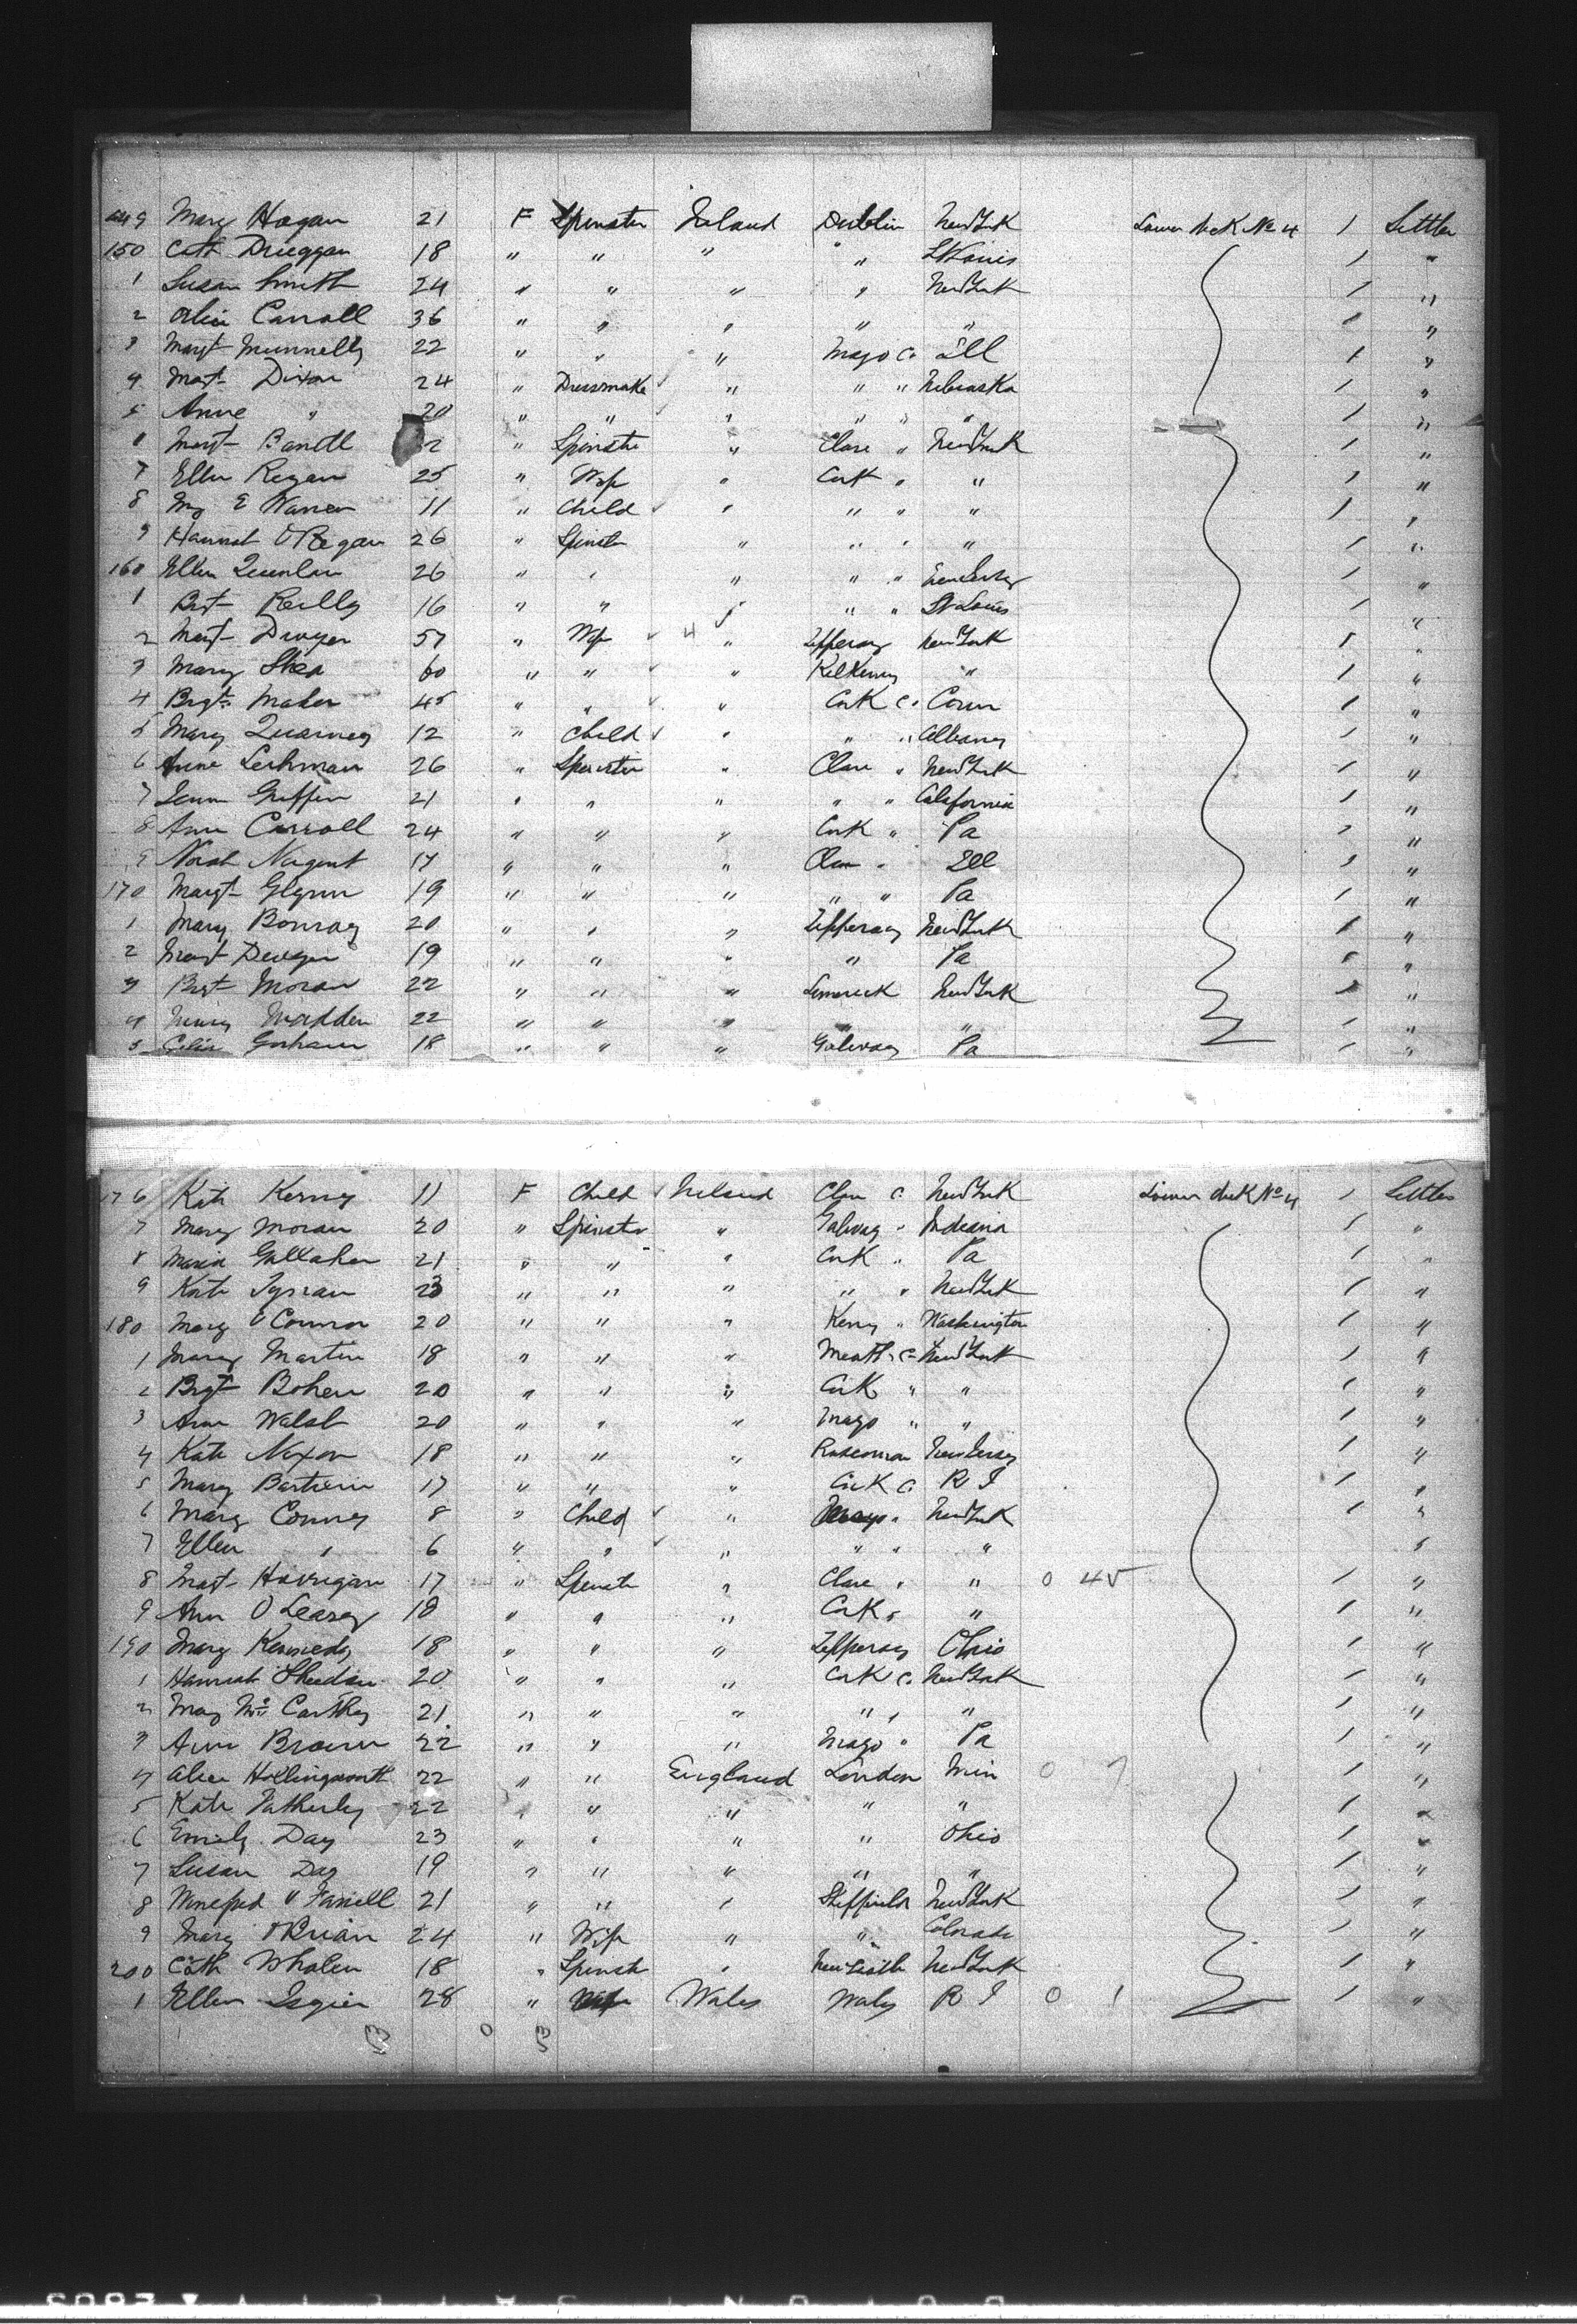 149 Mary Hogan 21 F Spinster Ireland Dublin New York Lower deck No 4 1 Settler
150 Cath Drieggan 18 " " " " " St Louis 1 "
1 Susan Smith 24 " " " " New York 1 "
2 Alice Carroll 36 " " " " " 1 "
3 Margt Munnelly 22 " " " Mayo Co Ill 1 "
4 Mart Dixon 24 " Dressmake " " " Nebraska 1 "
5 Anne " 20 " " " " " " 1 "
6 Margt 2 " Spinster " Clare " New York 1 "
7 Ellen Regan 25 " Wife " Cork " " 1 "
8 My E Warren 11 " Child " " " " 1 "
9 Hannah O Regan 26 " Spinster " " " " 1 "
160 Ellen Quenlan 26 " " " " " New Jersey 1 "
1 Brt Reilly 16 " " " " " St Louis 1 "
2 Mart Dwyer 57 " Wife 4 " Tipperary New York 1 "
3 Mary Shea 60 " " " Kilkenny " 1 "
4 Brgt Maher 45 " " " Cork Co Conn 1 "
5 Mary Quarney 12 " Child " " " Albany 1 "
6 Anne Leshman 26 " Spinster " Clare " New York 1 "
7 Griffin 21 " " " " " California 1 "
8 Ann Carroll 24 " " " Cork " Pa 1 "
9 Norah Nugent 17 " " " Clare " Ill 1 "
170 Margt Glynn 19 " " " " " Pa 1 "
1 Mary Bonray 20 " " " Tipperary New York 1 "
2 Mart Dwyer 19 " " " " Pa 1 "
3 Brt Moran 22 " " " Limerick New York 1 "
4 Madden 22 " " " " " 1 "
5 Celia Gorham 18 " " " Galway Pa 1 "
176 Kate Kerny 11 F Child Ireland Clare Co New York Lower deck No 4 1 Settler
7 Mary Moran 20 " Spinster " Galway " Indiana 1 "
8 Maria Gallaher 21 " " " Cork " Pa 1 "
9 Kate 23 " " " " " New York 1 "
180 Mary O Connor 20 " " " Kerry " Washington 1 "
1 Mary Martin 18 " " " Meath Co New York 1 "
2 Brgt Bohen 20 " " " Cork " " 1 "
3 Ann Walsh 20 " " " Mayo " " 1 "
4 Kate Nixon 18 " " " Roscomon New Jersey 1 "
5 Mary 17 " " " Cork Co R I 1 "
6 Mary Conney 8 " Child " Mayo " New York 1 "
7 Ellen " 6 " " " " " " "
8 Mart Horrigan 17 " Spinster " Clare " " 0 45 1 "
9 Ann O Leary 18 " " " Cork " " 1 "
190 Mary Kennedy 18 " " " Tipperary Ohio 1 "
1 Hannah Sheedan 20 " " " Cork Co New York 1 "
2 May Mc Carthy 21 " " " " " " 1 "
3 Ann Brown 22 " " " Mayo " Pa 1 "
4 Alice Hollingworth 22 " " England London Min 0 7 1 "
5 Kate Fatherley 22 " " " " " 1 "
6 Emily Day 23 " " " " Ohio 1 "
7 Susan Day 19 " " " " " 1 "
8 Winefred O Farrell 21 " " " Sheffield New York 1 "
9 Mary O Brian 24 " Wife " " Colorado 1 "
200 Cath Whalen 18 " Spinster " Newcastle New York 1 "
1 Ellen 28 " Wife Wales Wales R I 0 1 1 "